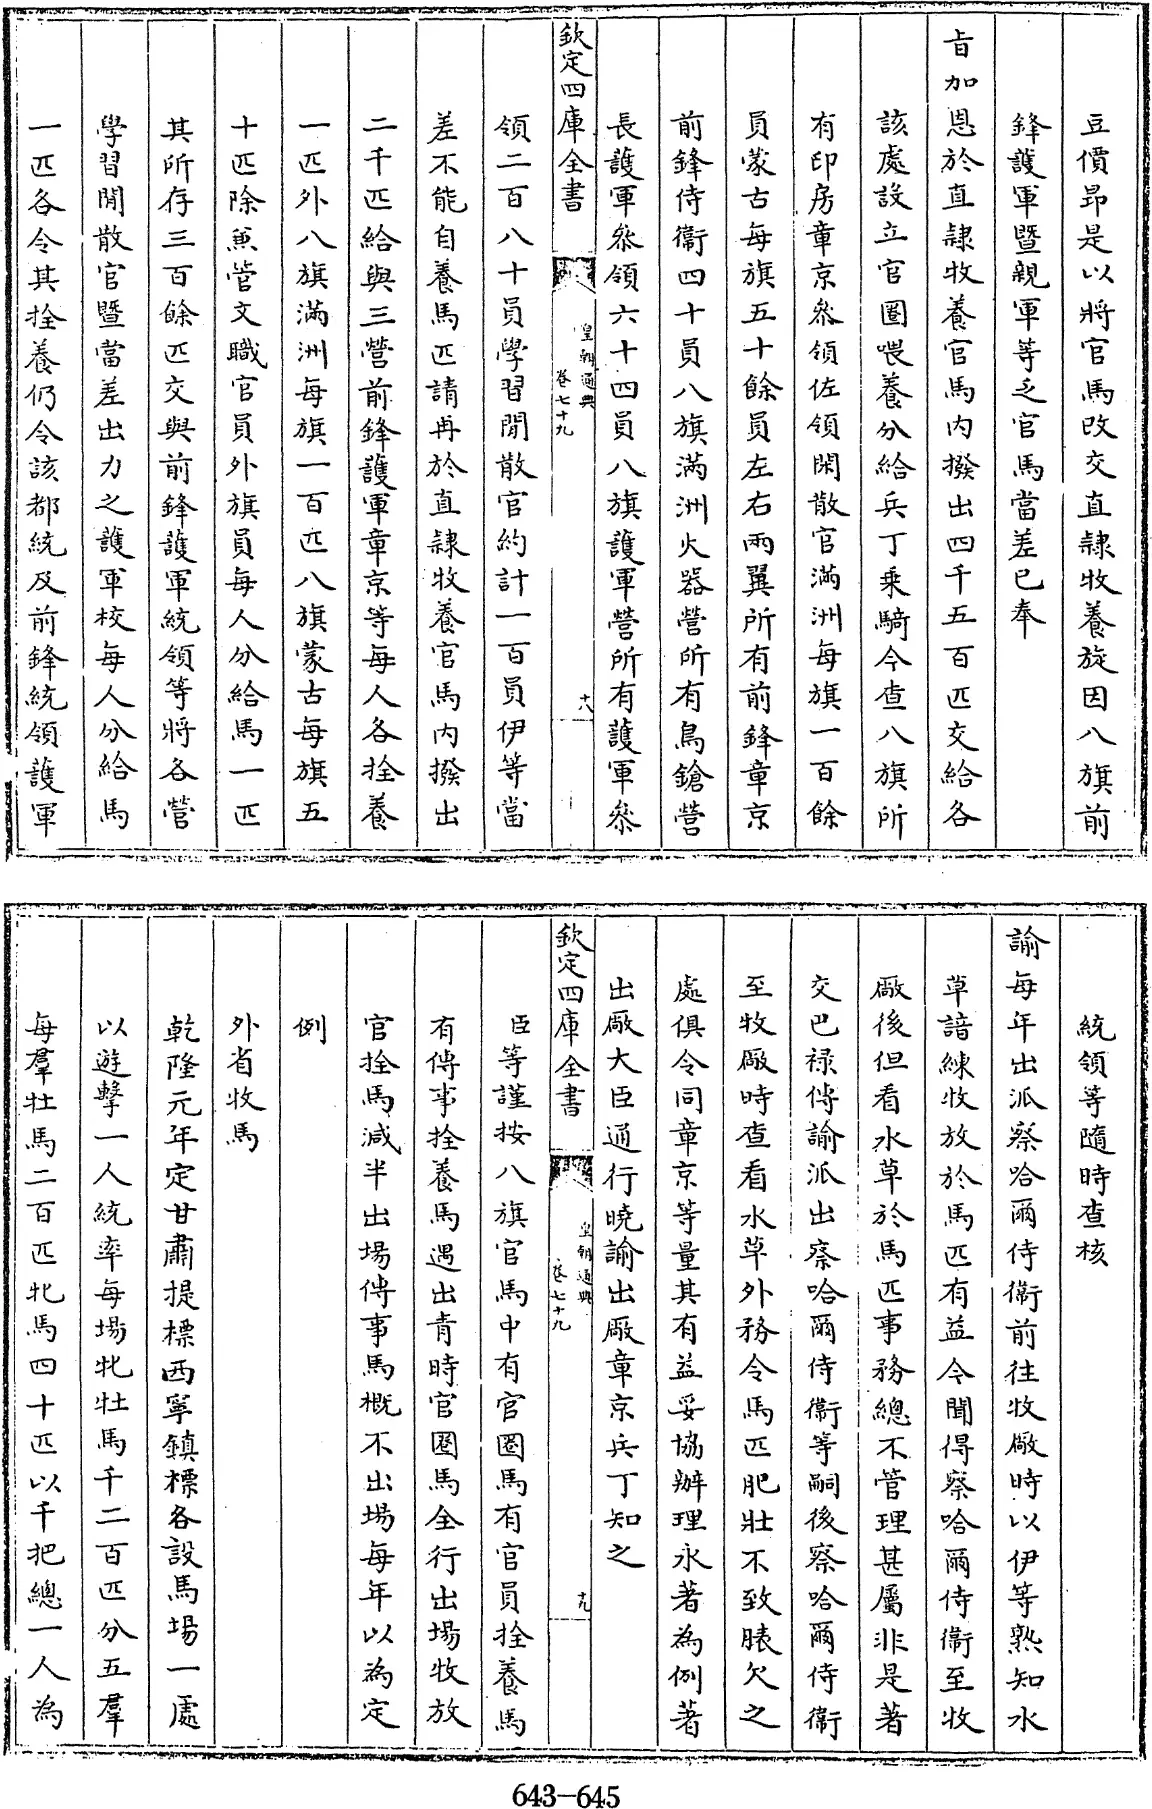 豆價昻是以將官馬改交直隷牧養旋因八旗前
鋒護軍暨親軍等乏官馬當差已奉
㫖加恩於直隷牧養官馬內撥出四千五百匹交給各
該處設立官圈喂養分給兵丁乘騎今查八旗所
有印房章京叅領佐領閑散官滿洲每旗一百餘
員蒙古每旗五十餘員左右兩翼所有前鋒章京
前鋒侍衛四十員八旗滿洲火器營所有鳥鎗營
長護軍叅領六十四員八旗護軍營所有護軍叅
欽定四庫全書
皇朝通典
卷七十九
十八
領二百八十員學習閒散官約計一百員伊等當
差不能自養馬匹請再於直隷牧養官馬內撥出
二千匹給與三營前鋒護軍章京等每人各拴養
一匹外八旗滿洲每旗一百匹八旗蒙古每旗五
十匹除兼管文職官員外旗員每人分給馬一匹
其所存三百餘匹交與前鋒護軍統領等將各營
學習閒散官暨當差出力之護軍校每人分給馬
一匹各令其拴養仍令該都統及前鋒統領護軍
統領等隨時查核
諭每年出派察哈爾侍衛前往牧厰時以伊等熟知水
草諳練牧放於馬匹有益今聞得察哈爾侍衛至牧
厰後但看水草於馬匹事務總不管理甚屬非是著
交巴祿傳諭派出察哈爾侍衛等嗣後察哈爾侍衛
至牧厰時查看水草外務令馬匹肥壯不致臕欠之
處俱令同章京等量其有益妥協辦理永著為例著
出厰大臣通行曉諭出厰章京兵丁知之
欽定四庫全書
皇朝通典
卷七十九
十九
臣等謹按八旗官馬中有官圈馬有官員拴養馬
有傳事拴養馬遇出青時官圈馬全行出場牧放
官拴馬減半出場傳事馬概不出場每年以為定
例
外省牧馬
乾隆元年定甘肅提標西寧鎮標各設馬場一處
以遊擊一人統率每場牝牡馬千二百匹分五羣
每羣牡馬二百匹牝馬四十匹以千把總一人為
643-645